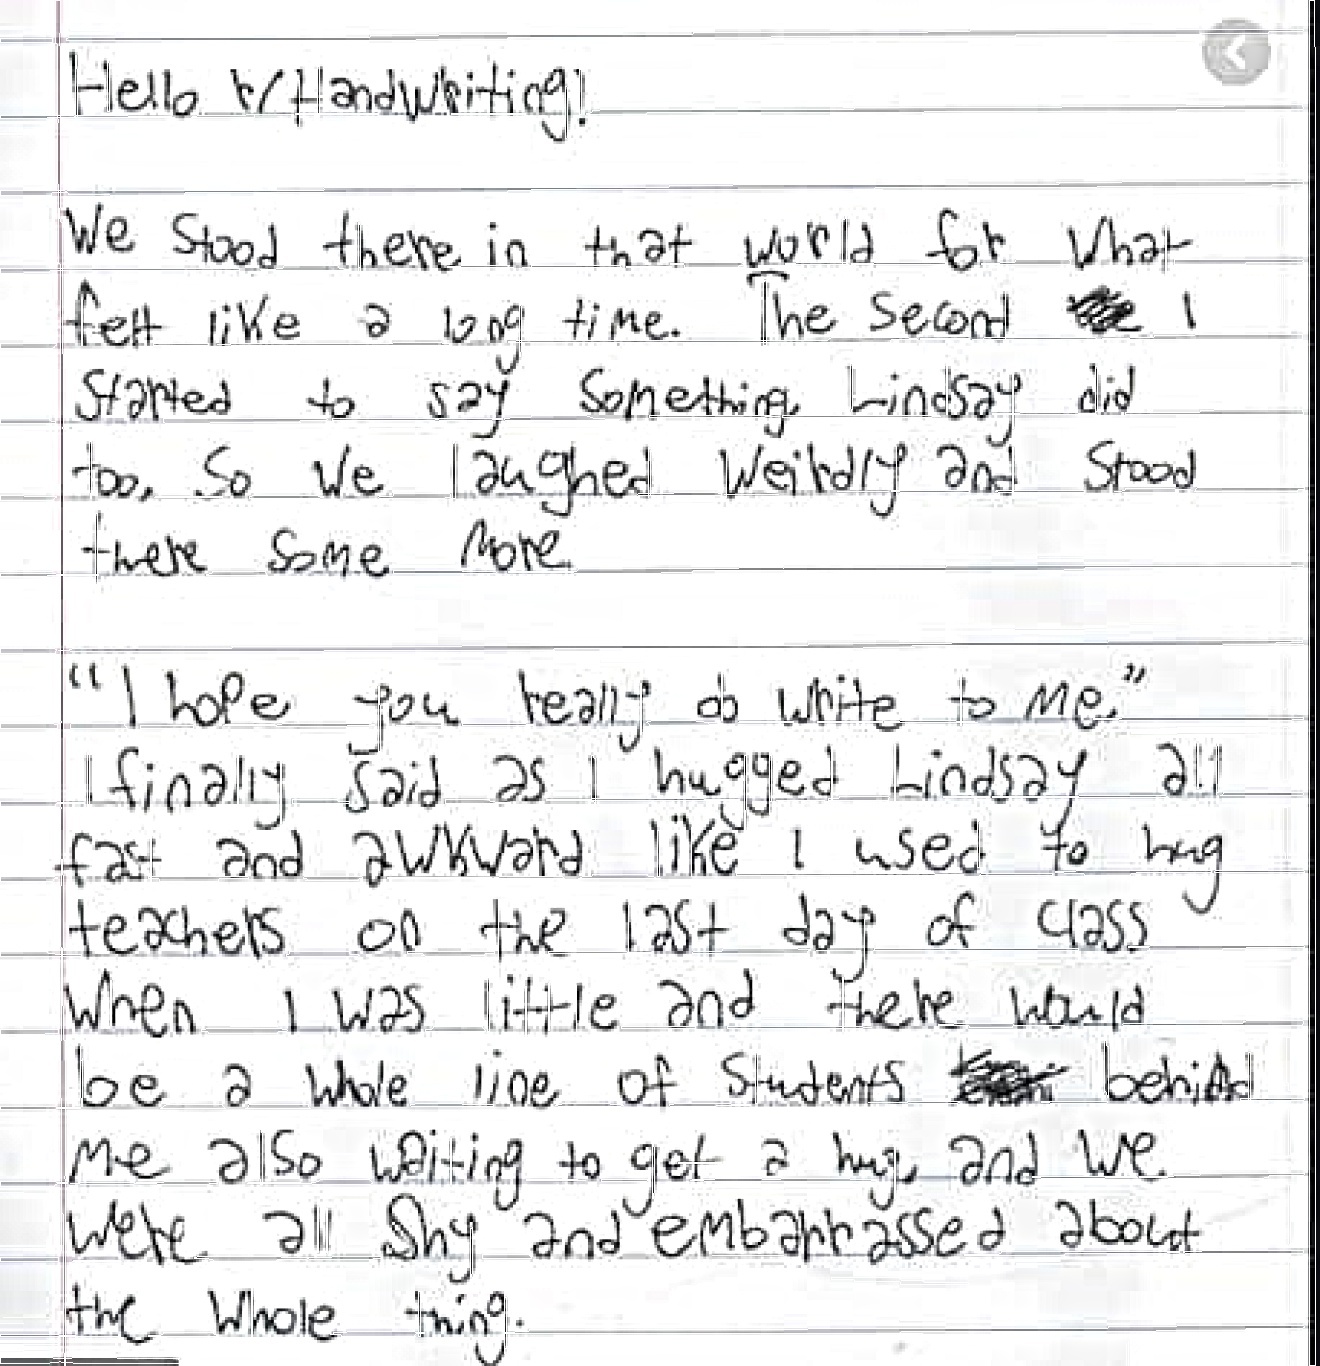 Hello r/Handwriting!
We Stood there in that world for What
felt like a long time. The Second I
Started to say Something, Lindsay did
too, So We laughed Weirdly and Stood
there Some More.
"I hope you really do write to Me."
I finally Said as I hugged Lindsay all
fast and awkward like I used to hug
teachers on the last day of class
When I was little and there Would
be a whole line of Students behind
Me also waiting to get a hug, and We
Were all Shy and embarrassed about
the Whole thing.